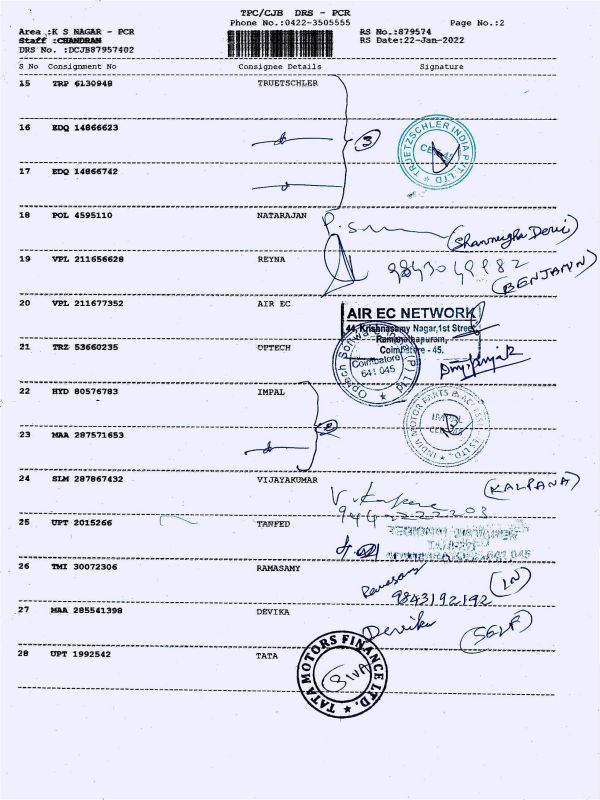 TPC/CJB DRS - PCR
Phone No.:0422-3505555
Page No.:2
Area :K S NAGAR - PCR
RS No.:879574
Staff :CHANDRAN
RS Date:22-Jan-2022
DRS No. :DCJB87957402
S No Consignment No Consignee Details Signature
15 TRP 6130948 TRUETSCHLER
16 EDQ 14866623
3
TRUETZSCHLER INDIA PVT. LTD
17 EDQ 14866742
18 POL 4595110 NATARAJAN
(Shanmugha Devi)
19 VPL 211656628 REYNA
9843049982
(BENJAMIN)
20 VPL 211677352 AIR EC
AIR EC NETWORK
44, Krishnasamy Nagar,1st Street,
Ramanathapuram,
Coimbatore - 45.
21 TRZ 53660235 OPTECH
Optech Software (P) Ltd
Coimbatore
641 045
22 HYD 80576783 IMPAL
2
INDIA MOTOR PARTS & ACCESSORIES LTD.
IMPAL
23 MAA 287571653
24 SLM 287867432 VIJAYAKUMAR
(KALPANA)
25 UPT 2015266 TANFED
26 TMI 30072306 RAMASAMY
Ramasamy
9843192192
27 MAA 285541398 DEVIKA
Devika
(SELF)
28 UPT 1992542 TATA
TATA MOTORS FINANCE LTD.
SIVA